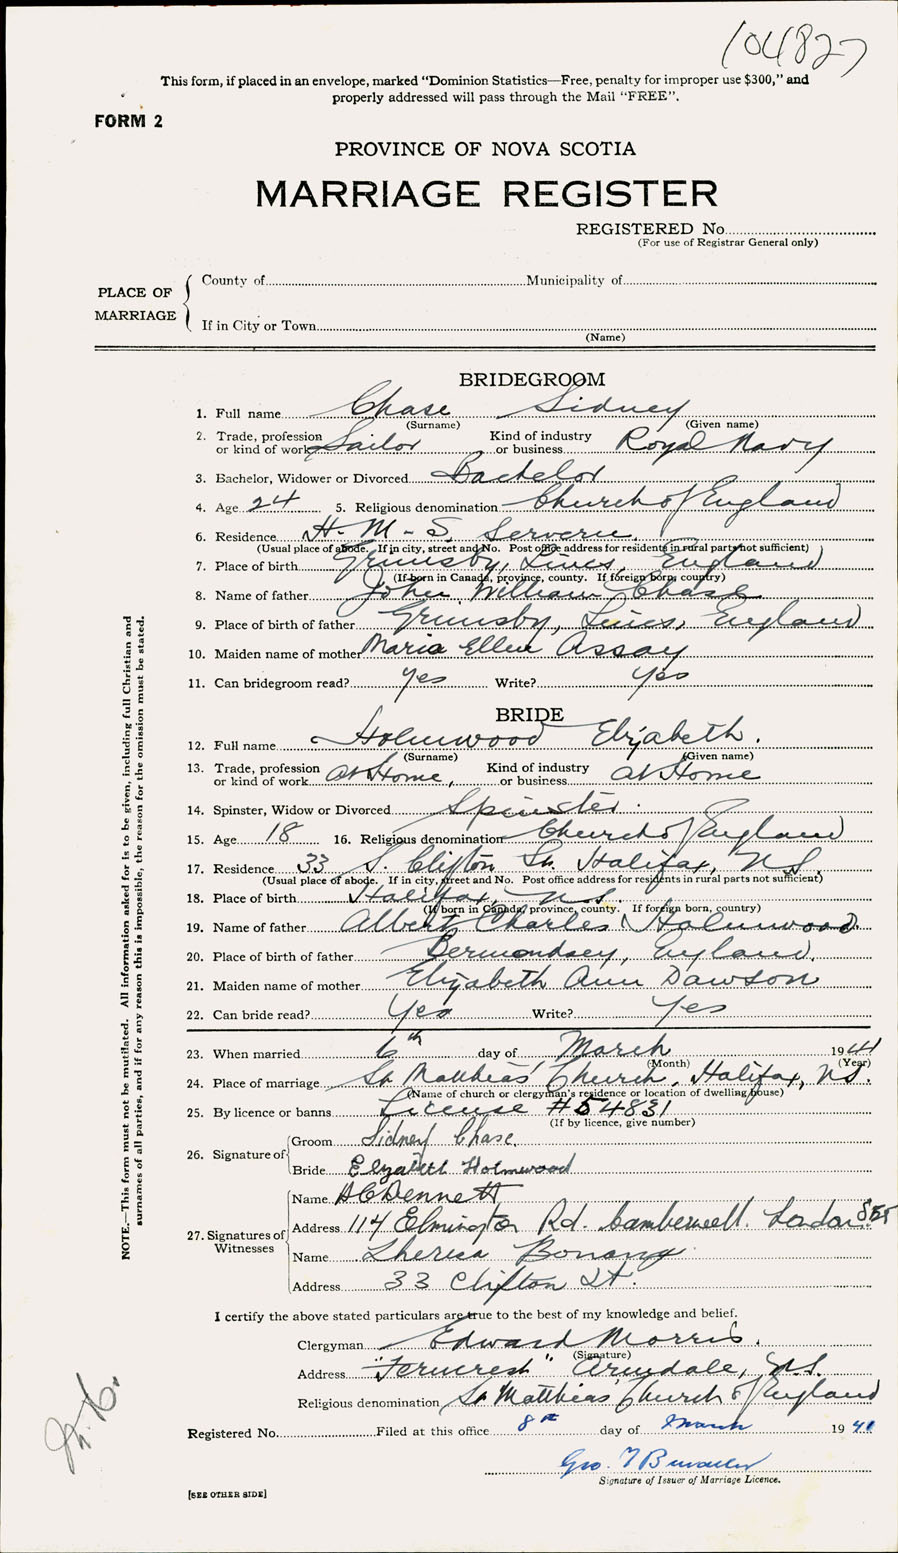 104827
This form, if placed in an envelope, marked “Dominion Statistics—Free, penalty for improper use $300,” and
properly addressed will pass through the Mail “FREE”.
FORM 2
PROVINCE OF NOVA SCOTIA
MARRIAGE REGISTER
REGISTERED No.
(For use of Registrar General only)
PLACE OF MARRIAGE
County of Municipality of
If in City or Town
(Name)
BRIDEGROOM
1. Full name Chase Sidney
(Surname) (Given name)
2. Trade, profession or kind of work Sailor Kind of industry or business Royal Navy
3. Bachelor, Widower or Divorced Bachelor
4. Age 24 5. Religious denomination Church of England
6. Residence H.M.S. Servern.
(Usual place of abode. If in city, street and No. Post office address for residents in rural parts not sufficient)
7. Place of birth Grimsby, Lincs, England
(If born in Canada, province, county. If foreign born, country)
8. Name of father John William Chase
9. Place of birth of father Grimsby, Lincs, England
10. Maiden name of mother Maria Ellen Assay
11. Can bridegroom read? Yes Write? Yes
BRIDE
12. Full name Holmwood Elizabeth.
(Surname) (Given name)
13. Trade, profession or kind of work At Home, Kind of industry or business At Home
14. Spinster, Widow or Divorced Spinster.
15. Age 18 16. Religious denomination Church of England
17. Residence 33 S. Clifton St. Halifax, N.S.
(Usual place of abode. If in city, street and No. Post office address for residents in rural parts not sufficient)
18. Place of birth Halifax, N.S.
(If born in Canada, province, county. If foreign born, country)
19. Name of father Albert Charles Holmwood.
20. Place of birth of father Bermondsey, England.
21. Maiden name of mother Elizabeth Ann Dawson
22. Can bride read? Yes Write? Yes
23. When married 6th day of March 1941
(Month) (Year)
24. Place of marriage St. Matthias' Church, Halifax, N.S.
(Name of church or clergyman's residence or location of dwelling house)
25. By licence or banns License #54831
(If by licence, give number)
26. Signature of Groom Sidney Chase.
Bride Elizabeth Holmwood
27. Signatures of Witnesses
Name A C Dennett
Address 114 Elmington Rd. Camberwell. London SE5
Name Theresa Bonang.
Address 33 Clifton St.
I certify the above stated particulars are true to the best of my knowledge and belief.
Clergyman Edward Morris.
(Signature)
Address "Ferncrest" Armdale, N.S.
Religious denomination St. Matthias' Church of England
Registered No. Filed at this office 8th day of March 1941
Geo.
Signature of Issuer of Marriage Licence.
[SEE OTHER SIDE]
NOTE.—This form must not be mutilated. All information asked for is to be given, including full Christian and
surnames of all parties, and if for any reason this is impossible, the reason for the omission must be stated.